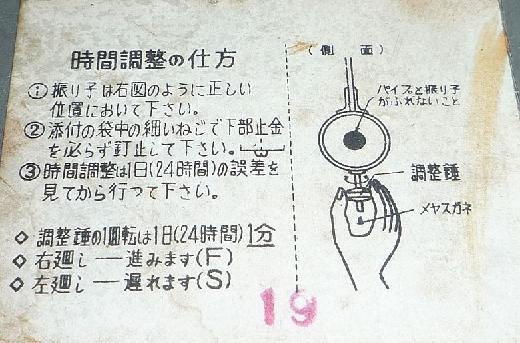 時間調整の仕方
① 振り子は右図のように正しい
位置において下さい。
② 添付の袋中の細いねじで下部止金
を必らず釘止して下さい。
③ 時間調整は1日(24時間)の誤差を
見てから行つて下さい。
◇ 調整錘の1回転は1日(24時間)1分
◇ 右廻し―進みます(F)
◇ 左廻し―遅れます(S)
(側面)
パイプと振り子
がふれないこと
調整錘
メヤスガネ
19